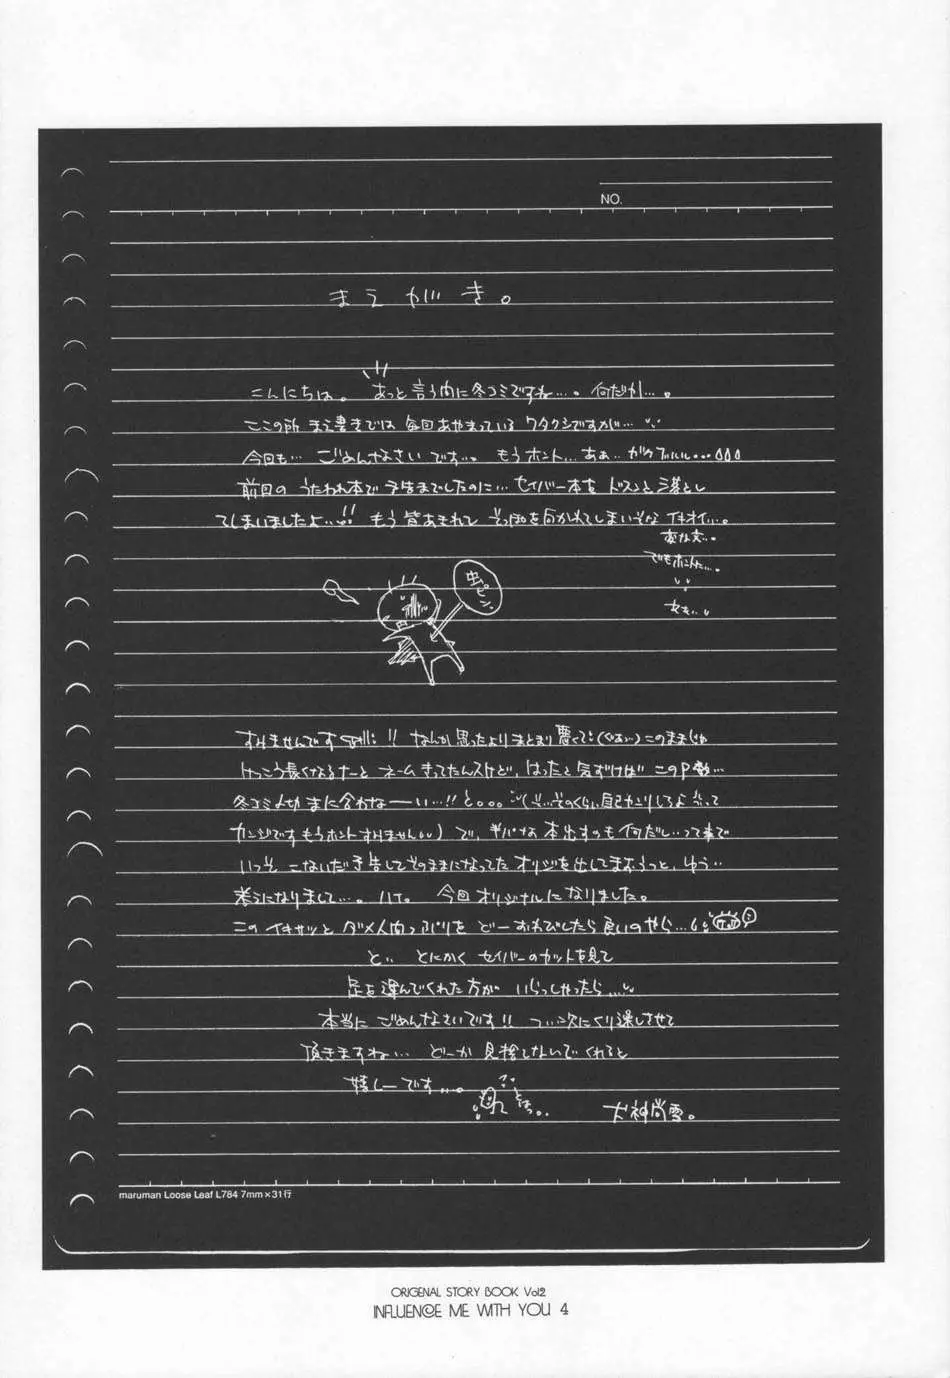 NO.
まえがき。
こんにちは。あっと言う間に冬コミですね…。何だか…。
ここの所 まえ書きでは 毎回あやまっている ワタクシですが…
今回も… ごめんなさいです… もうホント…あぁ…ガクブルルル…
前回の うたわれ本で 予告までしたのに… セイバー本を ドスンと落とし
てしまいましたよ…!! もう皆あきれて そっぽを向かれてしまいそな イキオイ…。
変な文…。
でもホント…
虫ピン。
すみませんです !! なんか思ったよりまとまり悪くて (ぐおぉ…) このままじゃ
けっこう長くなるなーと ネームきってたんスけど、はったと気づけば このP数…
冬コミ〆切 まに合わなーい…!! と。。。(そ…そのくらい自己カンリしろよ って
カンジです もうホント すみません) で、半パな 本出すのも 何だし…って事で
いっそ こないだ予告してそのままになってた オリジを出してまおうっと、ゆう
考えになりまして…。ハイ。 今回 オリジナルになりました。
この イキサツと ダメ人間っぷりを どーおわびしたら良いのやら…
と、とにかく セイバーのカットを見て
足を運んでくれた方が いらっしゃったら…
本当に ごめんなさいです!! つ…次にくり越しさせて
頂きますね… どーか 見捨てないでくれると
嬉しーです…。
犬神尚雪。
maruman Loose Leaf L784 7mm×31行
ORIGENAL STORY BOOK Vol2
INFLUENCE ME WITH YOU 4